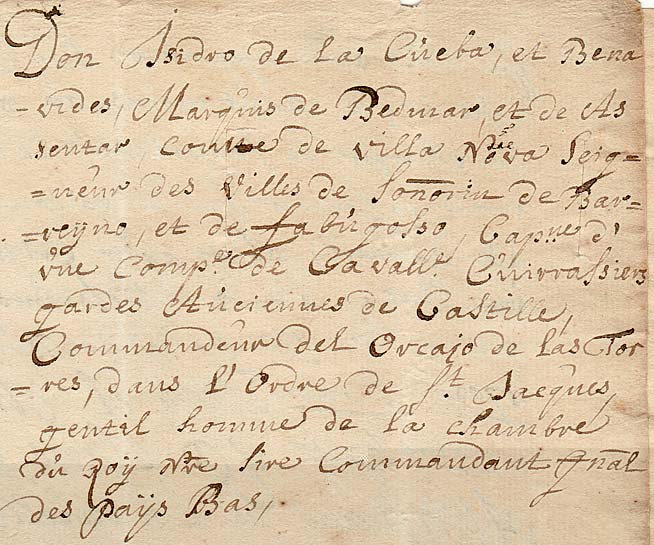 Don Isidro de la Cueba, et Bena
=vides, Marquis de Bedmar, et de As
sentar, Comte de Villa Nova Seig=
=neur des Villes de Sonorin de Bar=
=reyno, et de fabugosso, Capne d'
vne Compe de Cavalle Cuirrassiers
gardes Anciennes de Castille,
Commandeur del Orcajo de las Tor
=res, dans l'Ordre de St. Jacques,
gentil homme de la Chambre
du Roÿ Nre Sire Commandant Gnal
des Païs Bas,